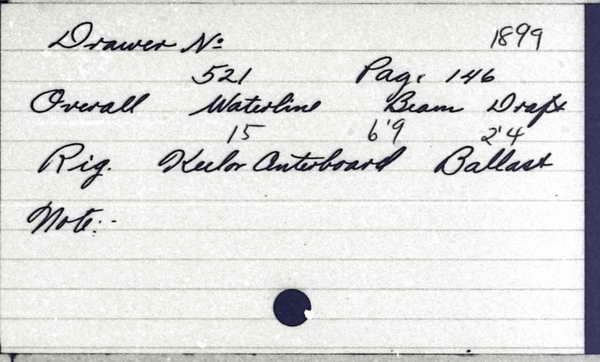 Drawer No 1899
521 Page 146
Overall Waterline Beam Draft
15 6'9 2'4
Rig. Keel or Centerboard Ballast
Note:-